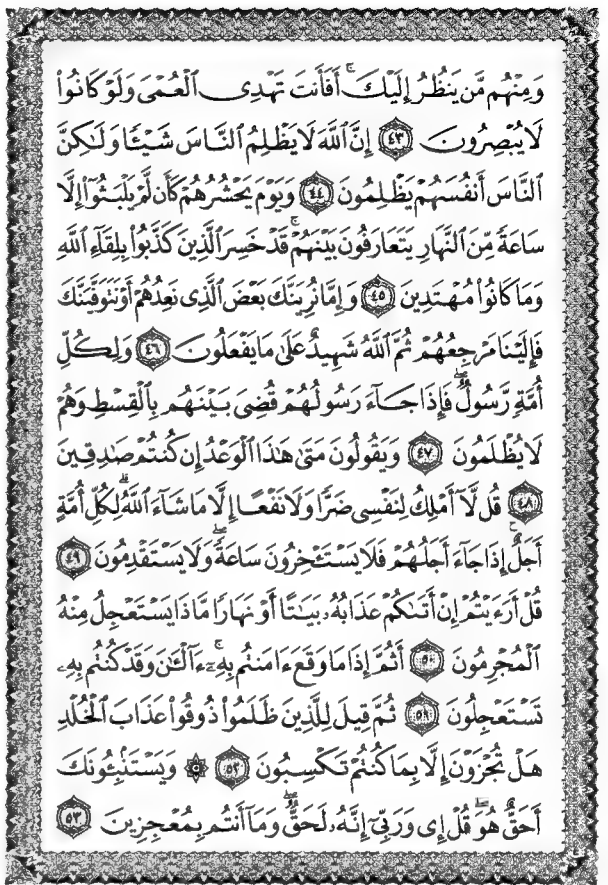 وَمِنْهُم مَّن يَنظُرُ إِلَيْكَ ۚ أَفَأَنتَ تَهْدِى الْعُمْىَ وَلَوْ كَانُوا۟
لَا يُبْصِرُونَ ٤٣ إِنَّ اللَّهَ لَا يَظْلِمُ النَّاسَ شَيْـًٔا وَلَـٰكِنَّ
النَّاسَ أَنفُسَهُمْ يَظْلِمُونَ ٤٤ وَيَوْمَ يَحْشُرُهُمْ كَأَن لَّمْ يَلْبَثُوٓا۟ إِلَّا
سَاعَةً مِّنَ النَّهَارِ يَتَعَارَفُونَ بَيْنَهُمْ ۚ قَدْ خَسِرَ الَّذِينَ كَذَّبُوا۟ بِلِقَآءِ اللَّهِ
وَمَا كَانُوا۟ مُهْتَدِينَ ٤٥ وَإِمَّا نُرِيَنَّكَ بَعْضَ الَّذِى نَعِدُهُمْ أَوْ نَتَوَفَّيَنَّكَ
فَإِلَيْنَا مَرْجِعُهُمْ ثُمَّ اللَّهُ شَهِيدٌ عَلَىٰ مَا يَفْعَلُونَ ٤٦ وَلِكُلِّ
أُمَّةٍ رَّسُولٌ ۖ فَإِذَا جَآءَ رَسُولُهُمْ قُضِىَ بَيْنَهُم بِالْقِسْطِ وَهُمْ
لَا يُظْلَمُونَ ٤٧ وَيَقُولُونَ مَتَىٰ هَـٰذَا الْوَعْدُ إِن كُنتُمْ صَـٰدِقِينَ
٤٨ قُل لَّآ أَمْلِكُ لِنَفْسِى ضَرًّا وَلَا نَفْعًا إِلَّا مَا شَآءَ اللَّهُ ۗ لِكُلِّ أُمَّةٍ
أَجَلٌ ۚ إِذَا جَآءَ أَجَلُهُمْ فَلَا يَسْتَـْٔخِرُونَ سَاعَةً ۖ وَلَا يَسْتَقْدِمُونَ ٤٩
قُلْ أَرَءَيْتُمْ إِنْ أَتَىٰكُمْ عَذَابُهُۥ بَيَـٰتًا أَوْ نَهَارًا مَّاذَا يَسْتَعْجِلُ مِنْهُ
الْمُجْرِمُونَ ٥٠ أَثُمَّ إِذَا مَا وَقَعَ ءَامَنتُم بِهِۦٓ ۚ ءَآلْـَٔـٰنَ وَقَدْ كُنتُم بِهِۦ
تَسْتَعْجِلُونَ ٥١ ثُمَّ قِيلَ لِلَّذِينَ ظَلَمُوا۟ ذُوقُوا۟ عَذَابَ الْخُلْدِ
هَلْ تُجْزَوْنَ إِلَّا بِمَا كُنتُمْ تَكْسِبُونَ ٥٢ ۞ وَيَسْتَنۢبِـُٔونَكَ
أَحَقٌّ هُوَ ۖ قُلْ إِى وَرَبِّىٓ إِنَّهُۥ لَحَقٌّ ۖ وَمَآ أَنتُم بِمُعْجِزِينَ ٥٣